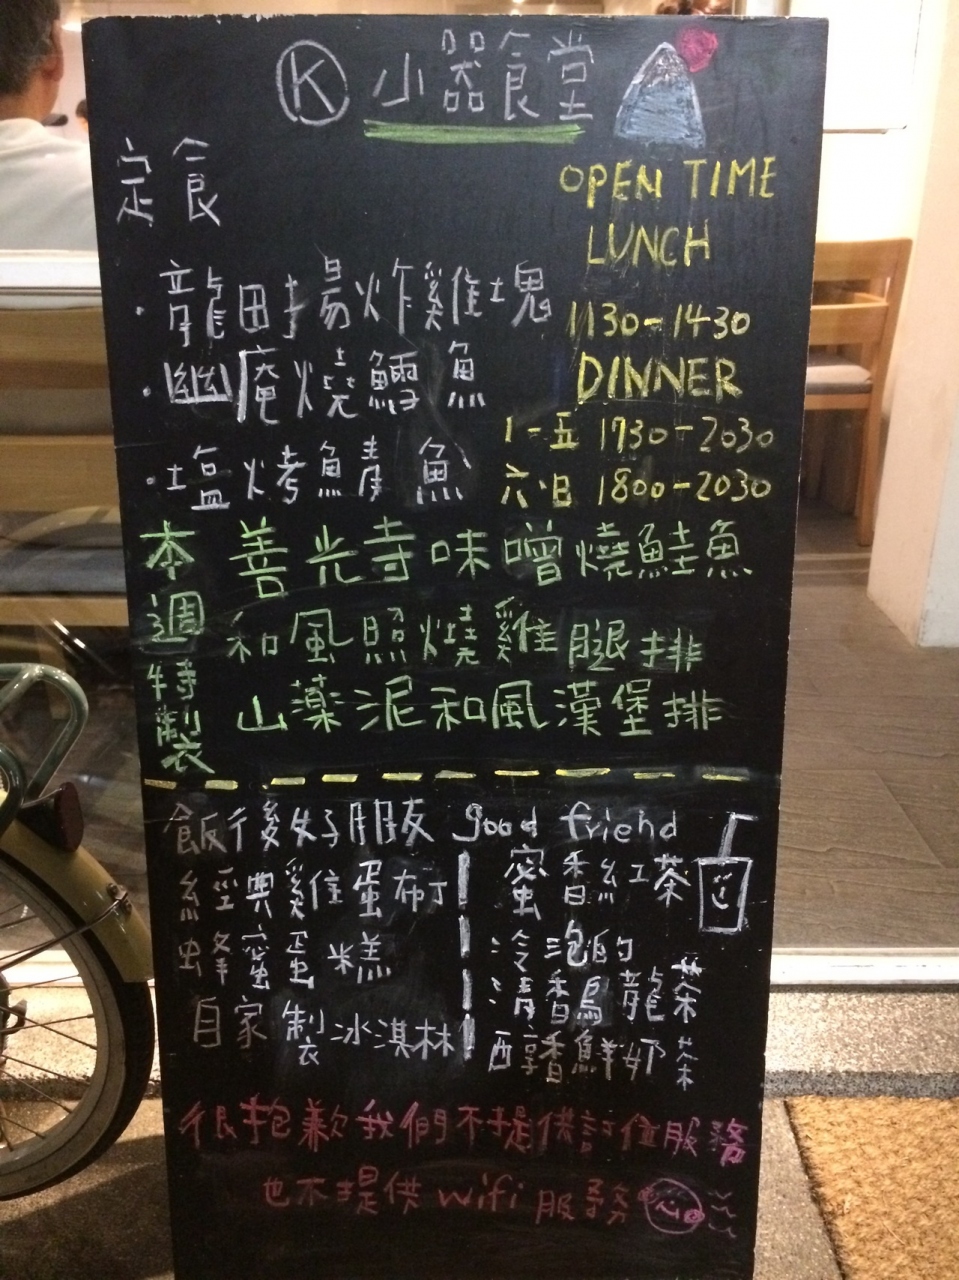 K 小器食堂
定食
OPEN TIME
LUNCH
1130-1430
DINNER
1-五 1730-2030
六、日 1800-2030
·龍田揚炸雞塊
·幽庵燒鱈魚
·塩烤鯖魚
本週特製
善光寺味噌燒鮭魚
和風照燒雞腿排
山藥泥和風漢堡排
飯後好朋友 good friend
經典雞佳蛋布丁
蜂蜜蛋糕
自家製冰淇林
蜜香紅茶
冷泡的
清香烏龍茶
醇香鮮奶茶
很抱歉我們不提供訂位服務
也不提供wifi服務